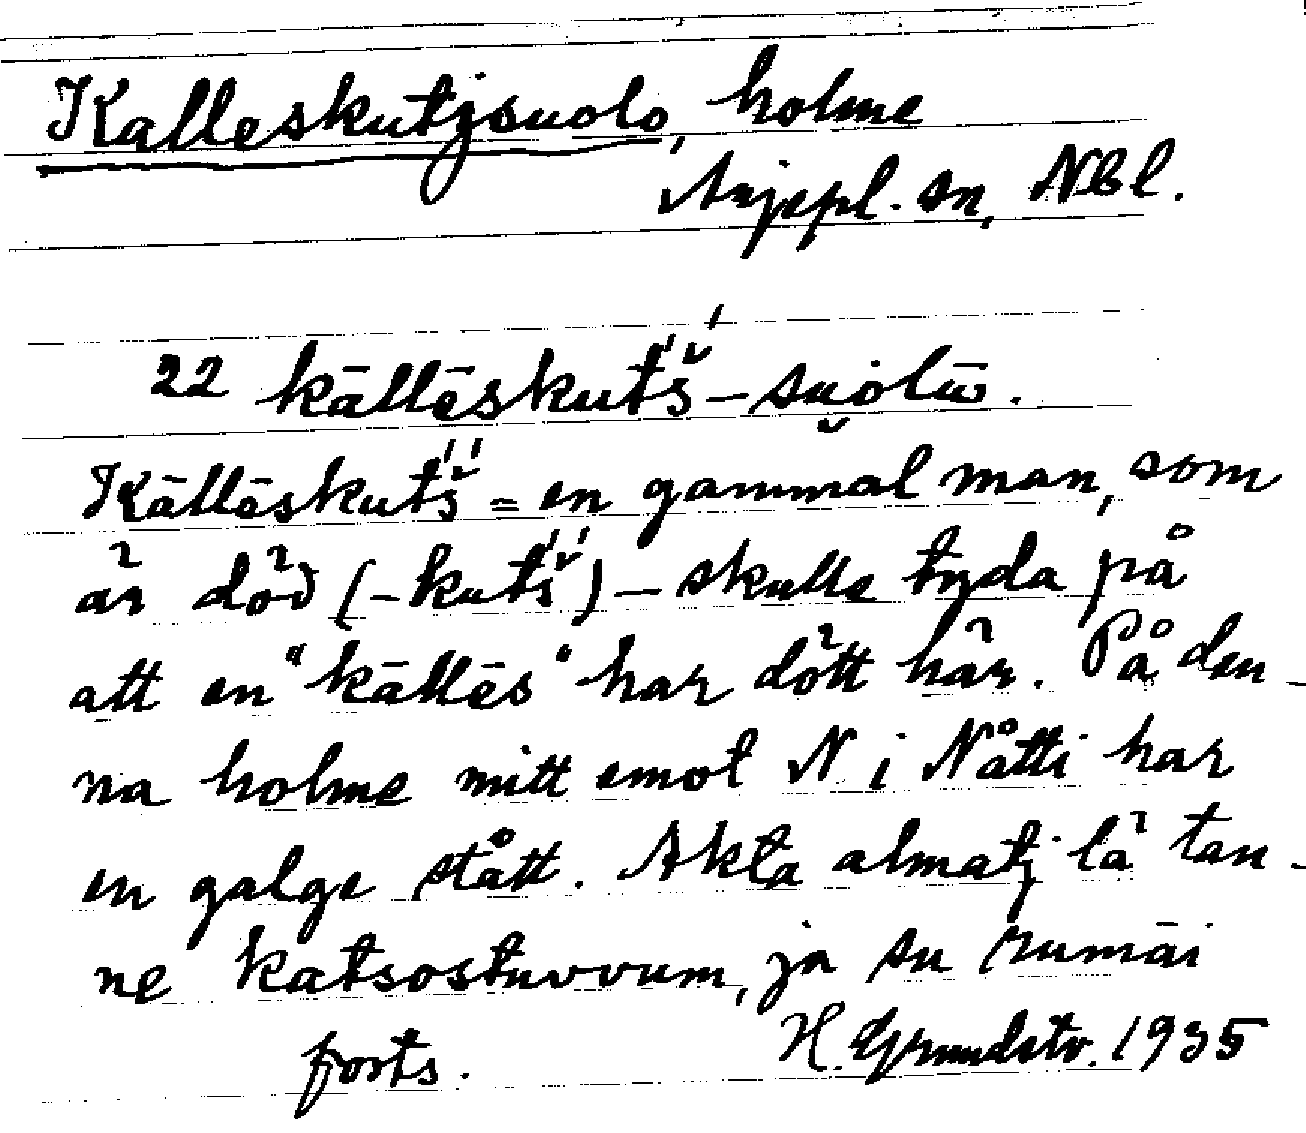 Kalleskutjsuolo, holme
Arjepl. sn, Nbl.
22 kāllēskutš́-su̯olu̅.
Kāllēskutš́ = en gammal man, som
är död (-kutš́) – skulle tyda på
att en "kāllēs" har dött här. På den-
na holme mitt emot N i Nåtti har
en galge stått. Akta almatj lä tan-
ne katsostuvvum, ja su rumāi
forts. H. Grundstr. 1935